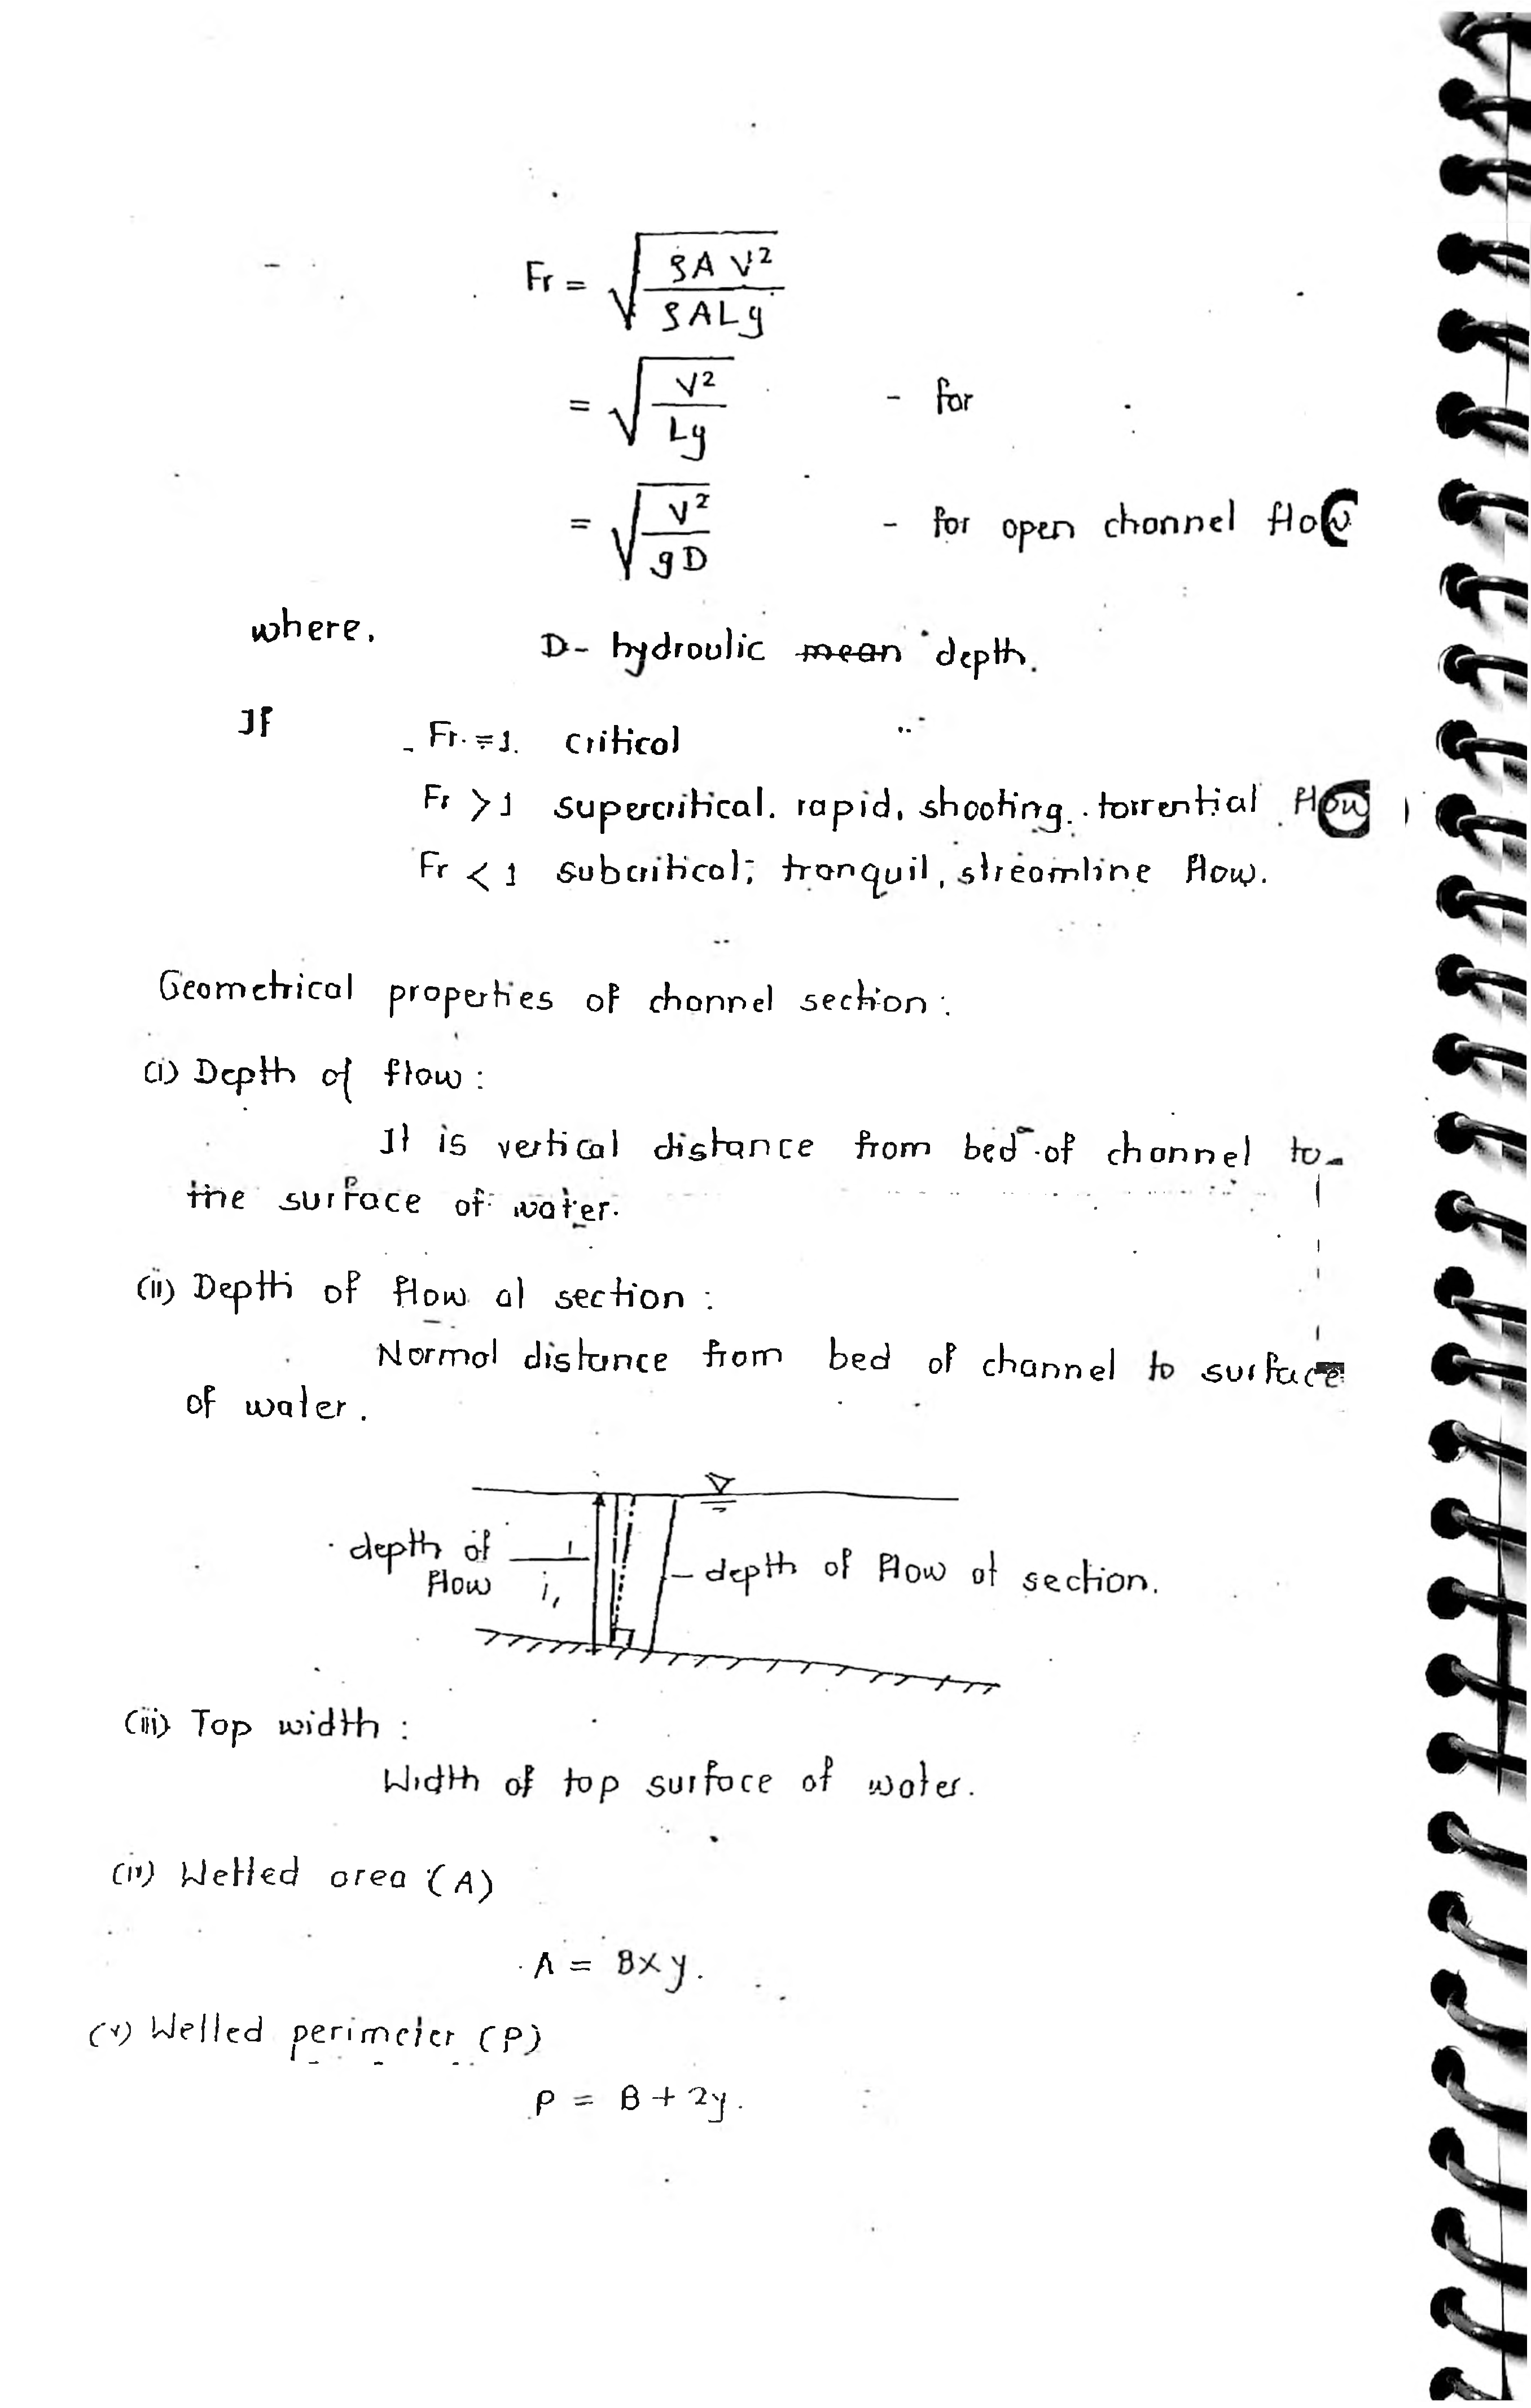 Fr = √(ρAV² / ρALg)
= √(V² / Lg) - for
= √(V² / gD) - for open channel flow
where, D- hydraulic ~~mean~~ depth.
If Fr = 1. critical
Fr > 1 supercritical, rapid, shooting, torrential flow
Fr < 1 subcritical, tranquil, streamline flow.
Geometrical properties of channel section:
(i) Depth of flow:
It is vertical distance from bed of channel to
the surface of water.
(ii) Depth of flow of section:
Normal distance from bed of channel to surface
of water.
depth of
flow
depth of flow of section.
(iii) Top width:
Width of top surface of water.
(iv) Wetted area (A)
A = B×y.
(v) Wetted perimeter (P)
P = B + 2y.